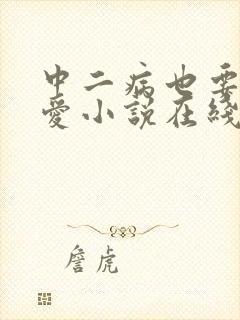 中二病也要
爱小说在线
詹虎